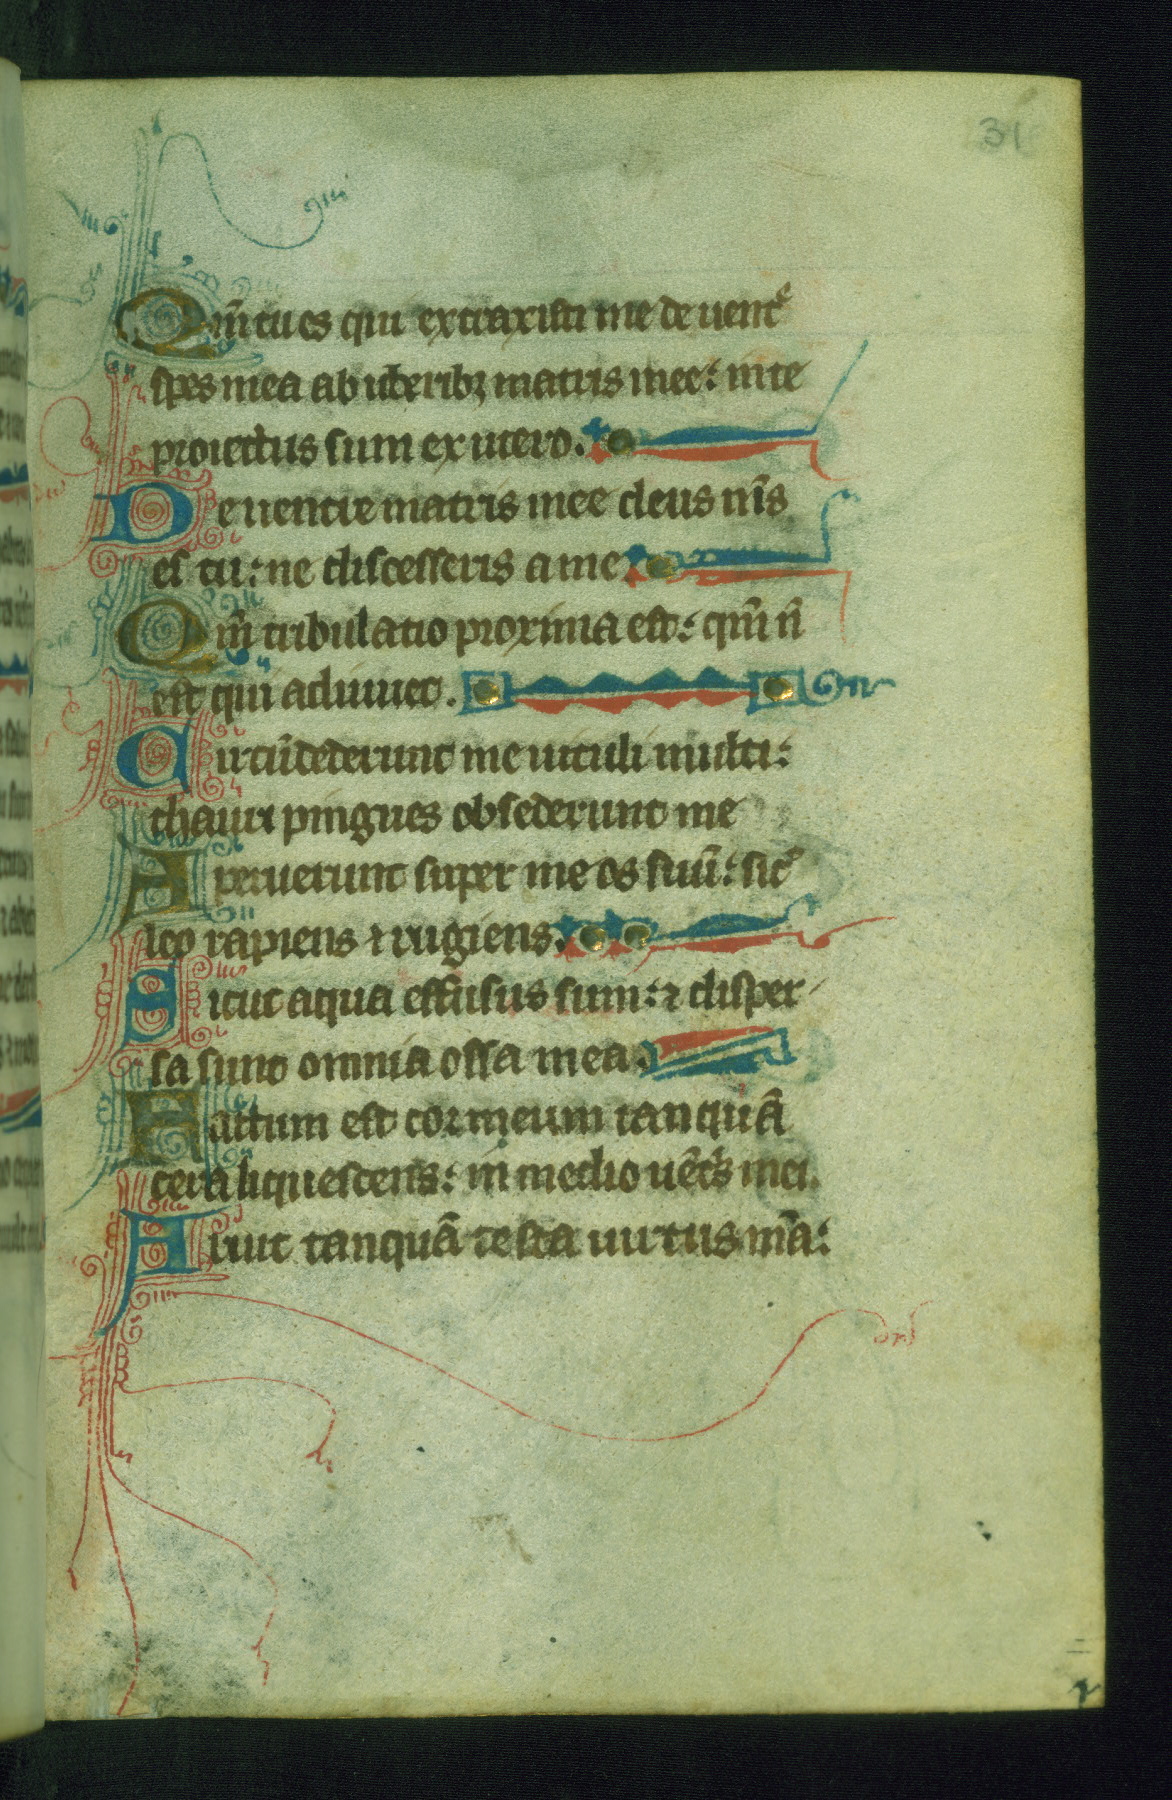 31
Qm̄ tu es qui extraxisti me de uentͤ
spes mea ab uberibꝫ matris mee: in te
proiectus sum ex utero.
De uentre matris mee deus m̄s
es tu: ne discesseris a me.
Qm̄ tribulatio proxima est: qm̄ n̄
est qui adiuuet.
Circūdederunt me uituli multi:
thauri pingues obsederunt me
Aperuerunt super me os suū: sic̄
leo rapiens ⁊ rugiens.
Sicut aqua effusus sum: ⁊ disper
sa sunt omnia ossa mea.
Factum est cor meum tanquā
cera liquescens: in medio uēt̄s mei.
Aruit tanquā testa uirtus m̄a: